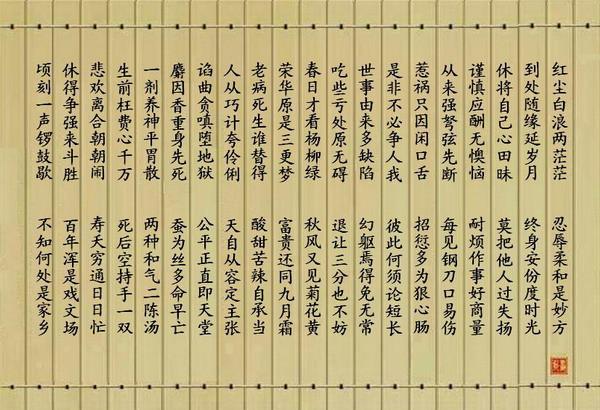 红尘白浪两茫茫
忍辱柔和是妙方
到处随缘延岁月
终身安份度时光
休将自己心田昧
莫把他人过失扬
谨慎应酬无懊恼
耐烦作事好商量
从来强弩弦先断
每见钢刀口易伤
惹祸只因闲口舌
招愆多为狠心肠
是非不必争人我
彼此何须论短长
世事由来多缺陷
幻躯焉得免无常
吃些亏处原无碍
退让三分也不妨
春日才看杨柳绿
秋风又见菊花黄
荣华原是三更梦
富贵还同九月霜
老病死生谁替得
酸甜苦辣自承当
人从巧计夸伶俐
天自从容定主张
谄曲贪嗔堕地狱
公平正直即天堂
麝因香重身先死
蚕为丝多命早亡
一剂养神平胃散
两种和气二陈汤
生前枉费心千万
死后空持手一双
悲欢离合朝朝闹
寿夭穷通日日忙
休得争强来斗胜
百年浑是戏文场
顷刻一声锣鼓歇
不知何处是家乡